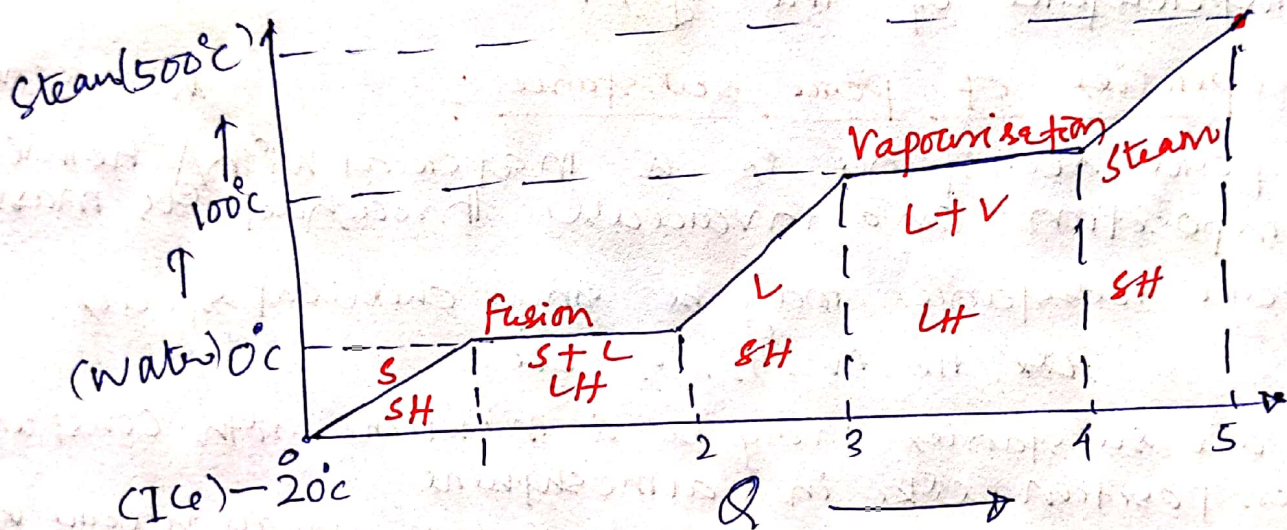 Steam(500°C)
↑
100°C
↑
(Water) 0°C
(Ice) -20°C
0
Fusion
S
SH
S + L
LH
L
SH
Vapourisation
L + V
LH
Steam
SH
1 2 3 4 5
Q →